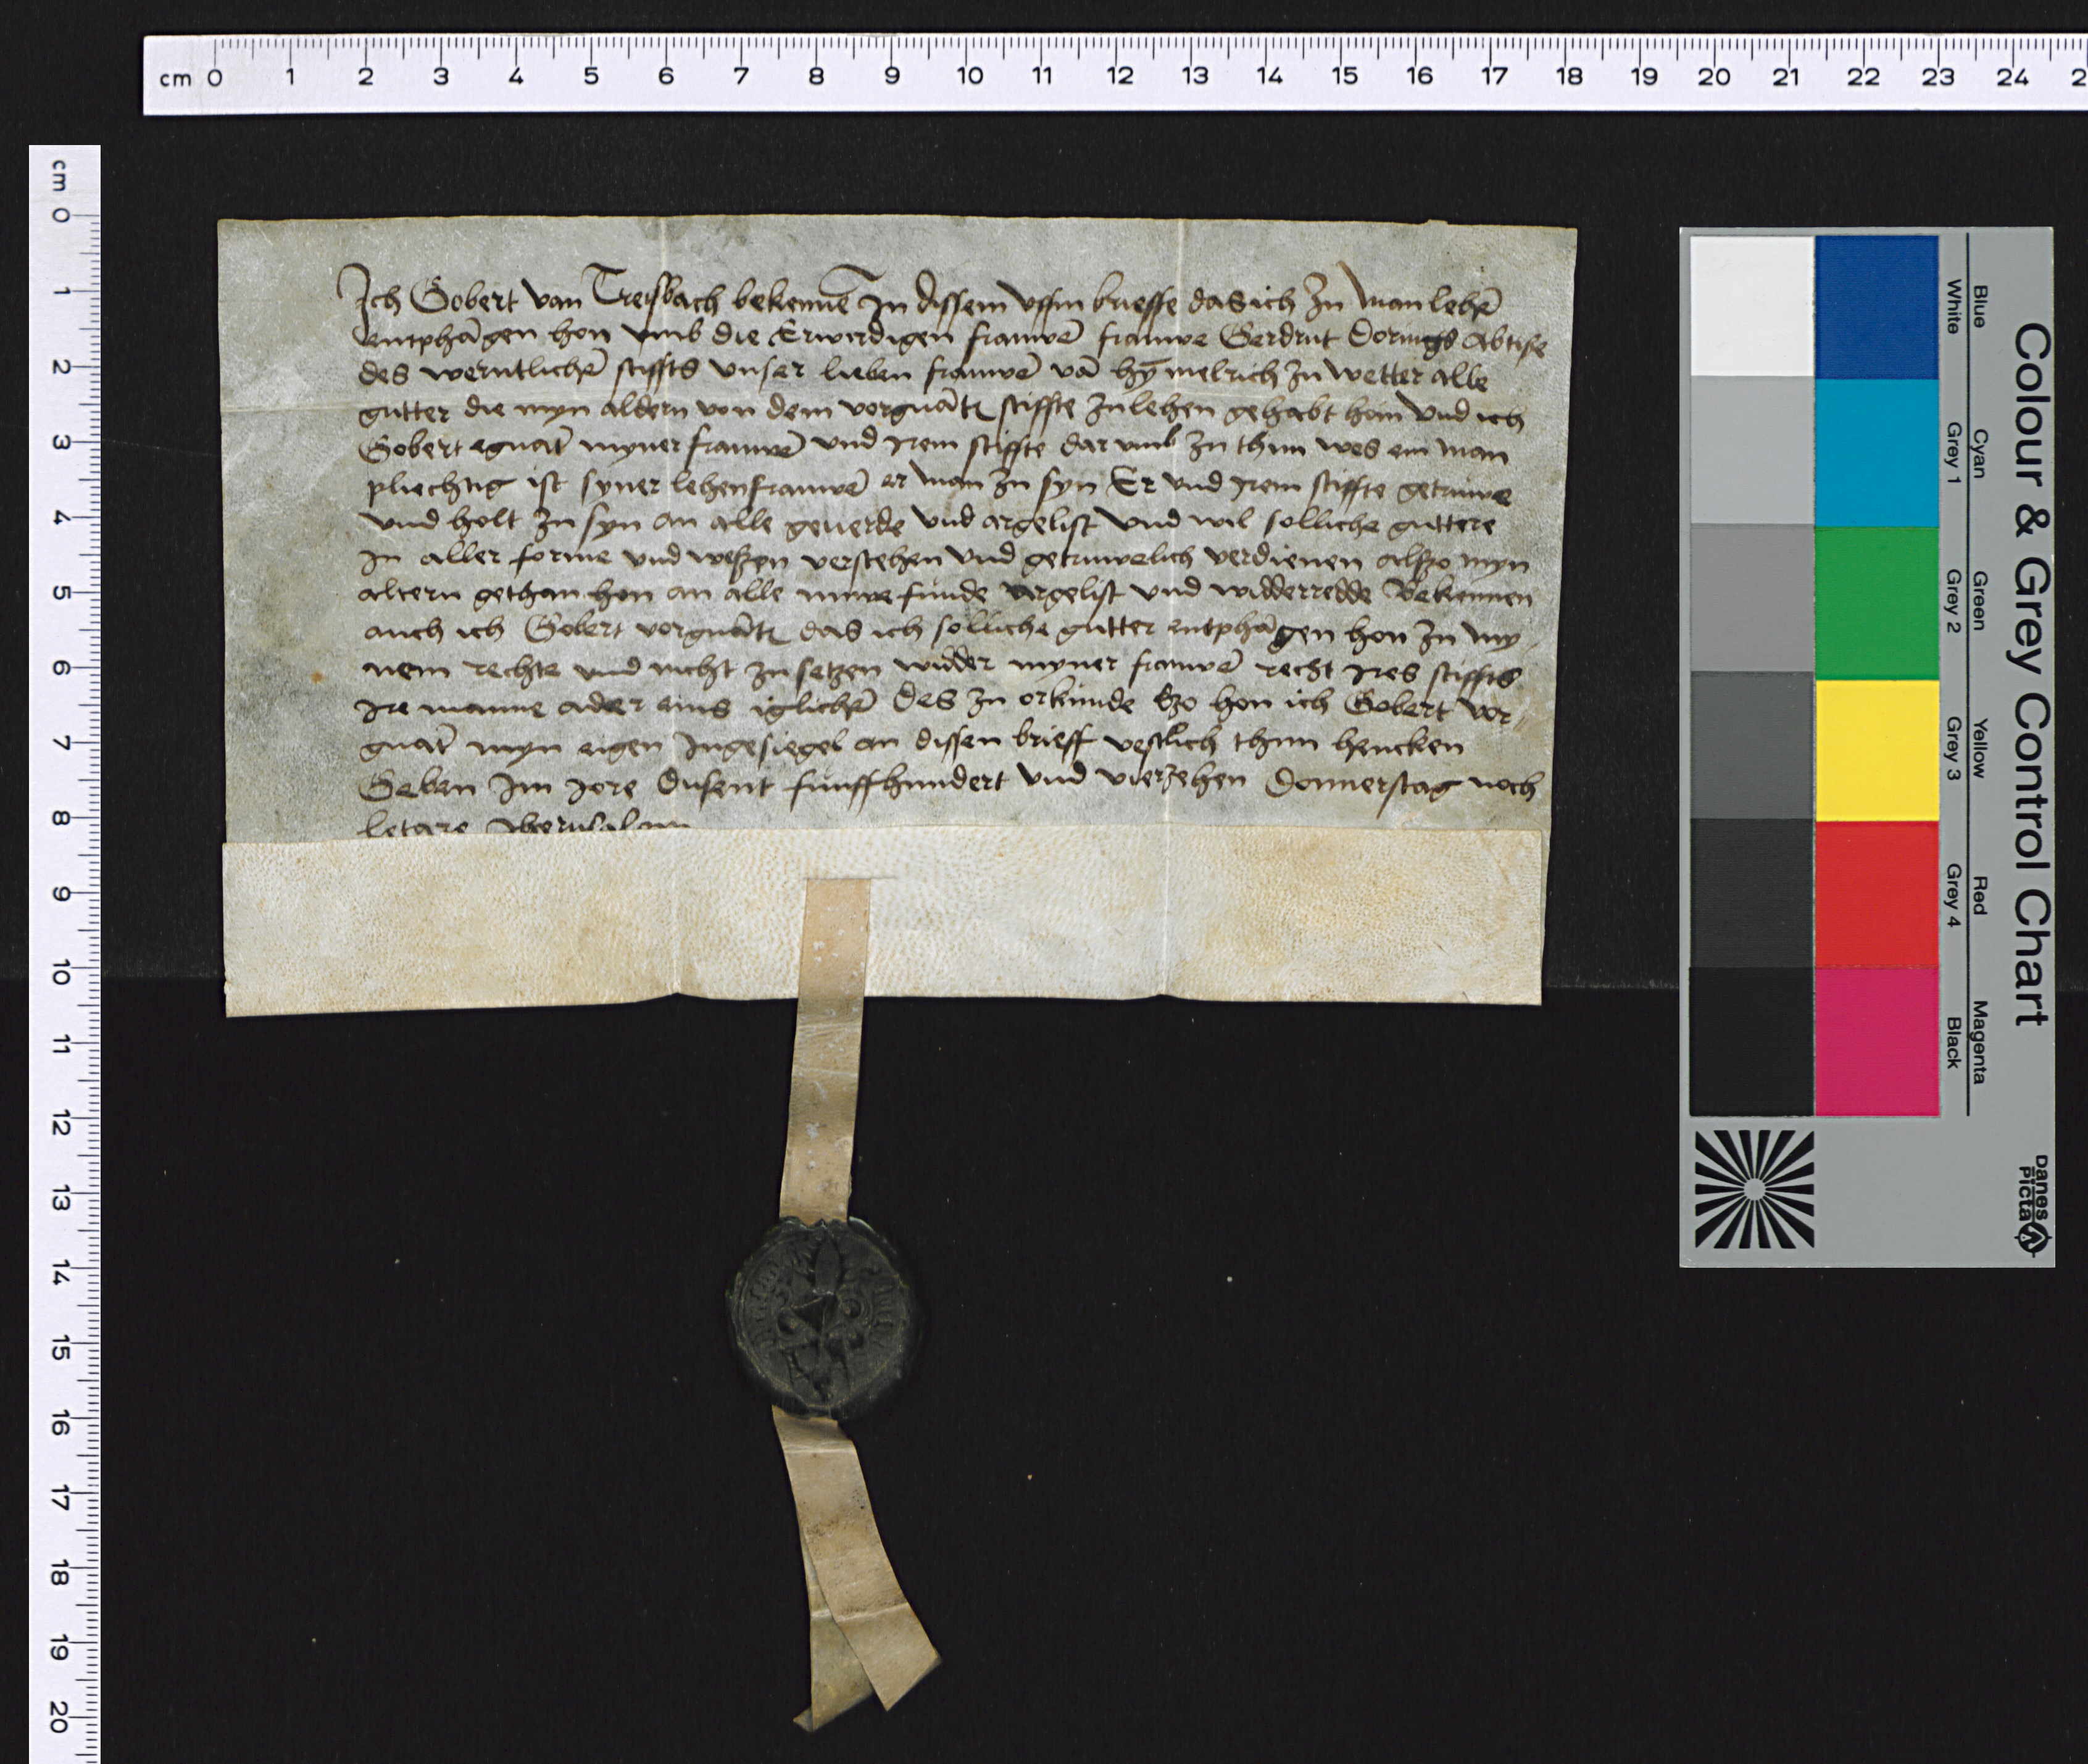 cm 0 1 2 3 4 5 6 7 8 9 10 11 12 13 14 15 16 17 18 19 20 21 22 23 24 2
cm 0 1 2 3 4 5 6 7 8 9 10 11 12 13 14 15 16 17 18 19 20
Ich Gobert van Treisbach bekenne̅ In dissem uffin brieffe das ich zu manlehe̅
entpha̅gen hon vmb die Erwerdigen frauwe̅ frauwe Gerdrut Dorings Abtise
des werntliche̅ stiffts vnser lieben frauwe̅ va̅ hy̅melrich zu Wetter alle
gutter die myn aldern von dem vorgna̅t stiffte zu lehen gehabt hain Vnd ich
Gobert egnat̅ myner frauwe̅ vnd irem stiffte dar vmb zu thun wes ein man
pliechtig ist syner lehenfrauwe̅ er man zu syn Er vnd irem stiffte getruwe
vnd holt zu syn an alle geuerde vnd argelist Vnd wil solliche guttere
In aller forme vnd weszen verstehen vnd getruwelich verdienen alszo myn
altern gethan hon an alle nuwe funde argelist vnd widderredde Bekennen
auch ich Gobert vorgna̅t das ich solliche gutter entpha̅gen hon zu my-
nem rechte vnd nicht zu setzen widder myner frauwe̅ recht ires stiffts
ire manne ader eins igliche̅ Des zu orkunde szo hon ich Gobert vor-
gnat̅ myn eigen Ingesiegel an dissen brieff vestlich thun hencken
Geben Im jore Dusent funffhundert vnd vierzehen Donnerstag noch
letare Jherusalem
Colour & Grey Control Chart
Blue Cyan Green Yellow Red Magenta
White Grey 1 Grey 2 Grey 3 Grey 4 Black
Danes Picta